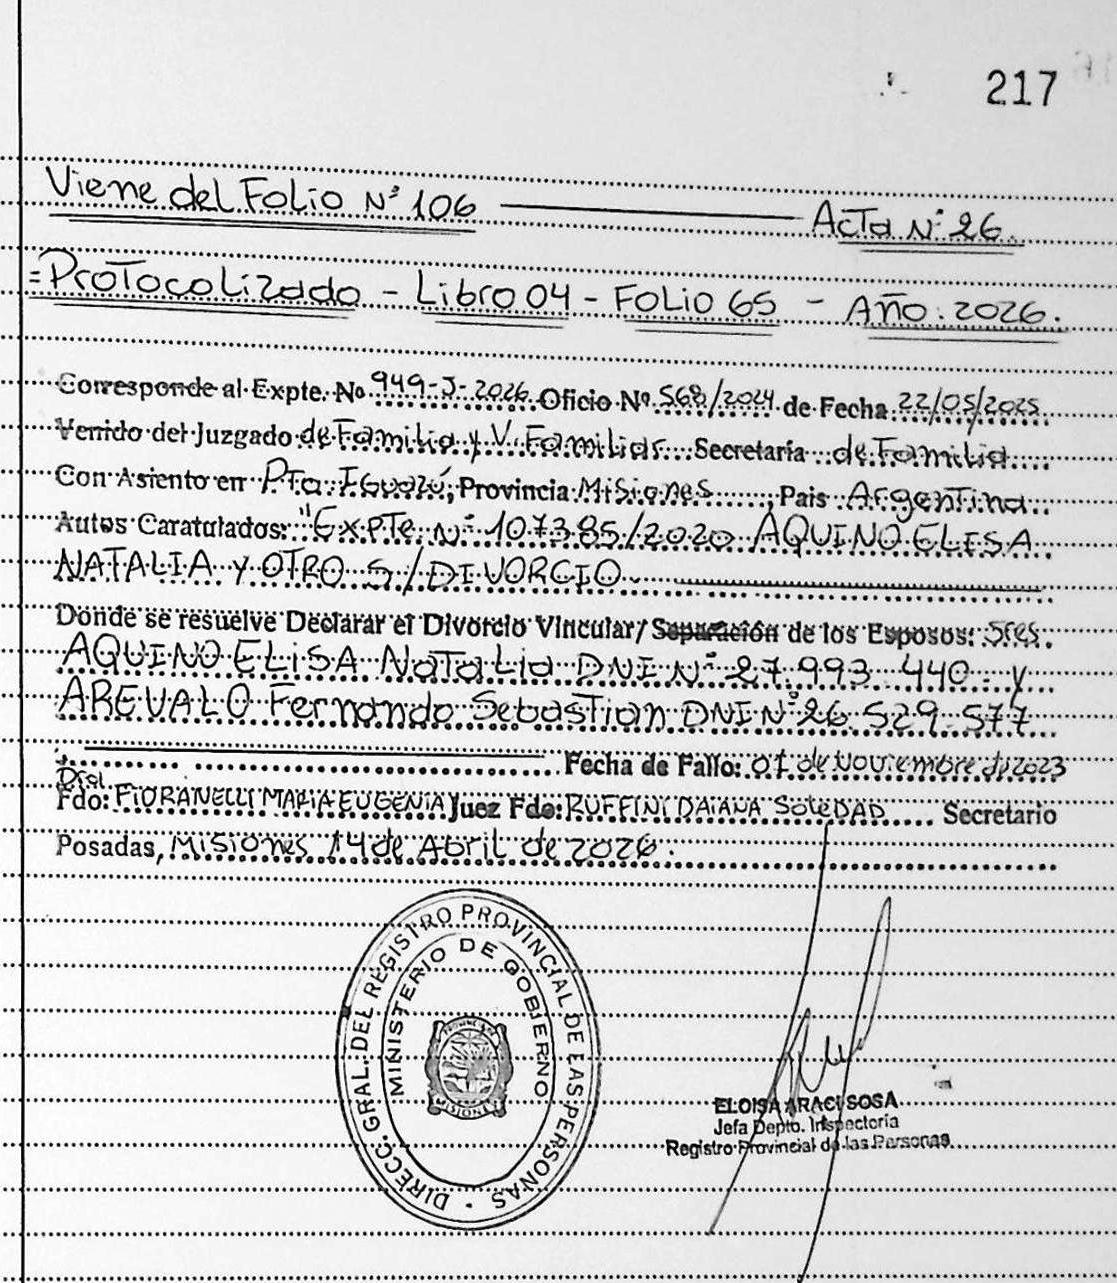 217
Viene del Folio N° 106 Acta N° 26.
=Protocolizado - Libro 04 - Folio 65 - Año: 2026.
Corresponde al Expte. Nº 949-J-2026 Oficio Nº 568/2024 de Fecha 22/05/2025
Venido del Juzgado de Familia y V. Familiar Secretaría de Familia
Con Asiento en Pto. Iguazú, Provincia Misiones, Pais Argentina
Autos Caratulados: "Expte. N° 107385/2020 AQUINO ELISA
NATALIA y OTRO S/DIVORCIO
Donde se resuelve Declarar el Divorcio Vincular/ Separación de los Esposos: Sres.
AQUINO ELISA Natalia DNI N° 27.993.440. y
AREVALO Fernando Sebastian DNI N° 26.529.577
Fecha de Fallo: 01 de Noviembre d/2023
Fdo: FIORANELLI MARIA EUGENIA Juez Fdo: RUFFINI DAIANA SOLEDAD Secretario
Posadas, Misiones 14 de Abril de 2026.
DIRECC. GRAL. DEL REGISTRO PROVINCIAL DE LAS PERSONAS
MINISTERIO DE GOBIERNO
MISIONES
ELOISA ARACI SOSA
Jefa Depto. Inspectoría
Registro Provincial de las Personas